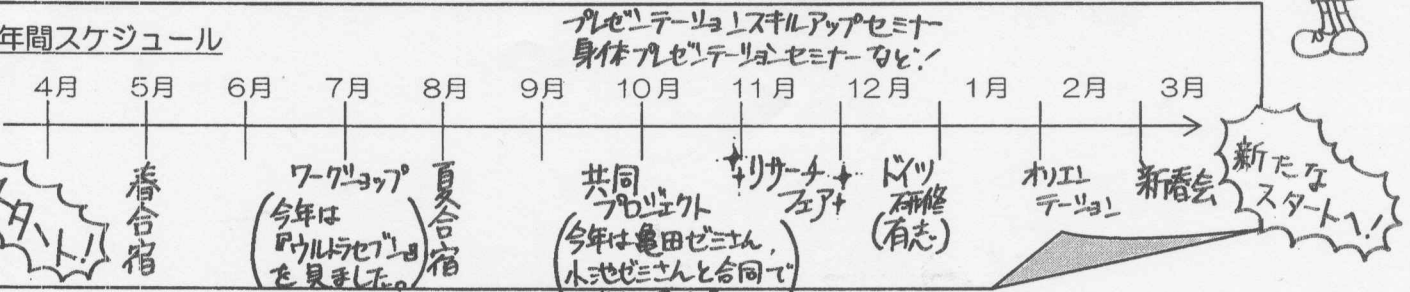 年間スケジュール
プレゼンテーションスキルアップセミナー
身体プレゼンテーションセミナーなど!
4月 5月 6月 7月 8月 9月 10月 11月 12月 1月 2月 3月
タート!
春合宿
ワークショップ
(今年は
『ウルトラセブン』
を見ました。)
夏合宿
共同
プロジェクト
(今年は亀田ゼミさん、
小池ゼミさんと合同で
リサーチ
フェア
ドイツ
研修
(有志)
オリエン
テーション
新春会
新たな
スタートへ!